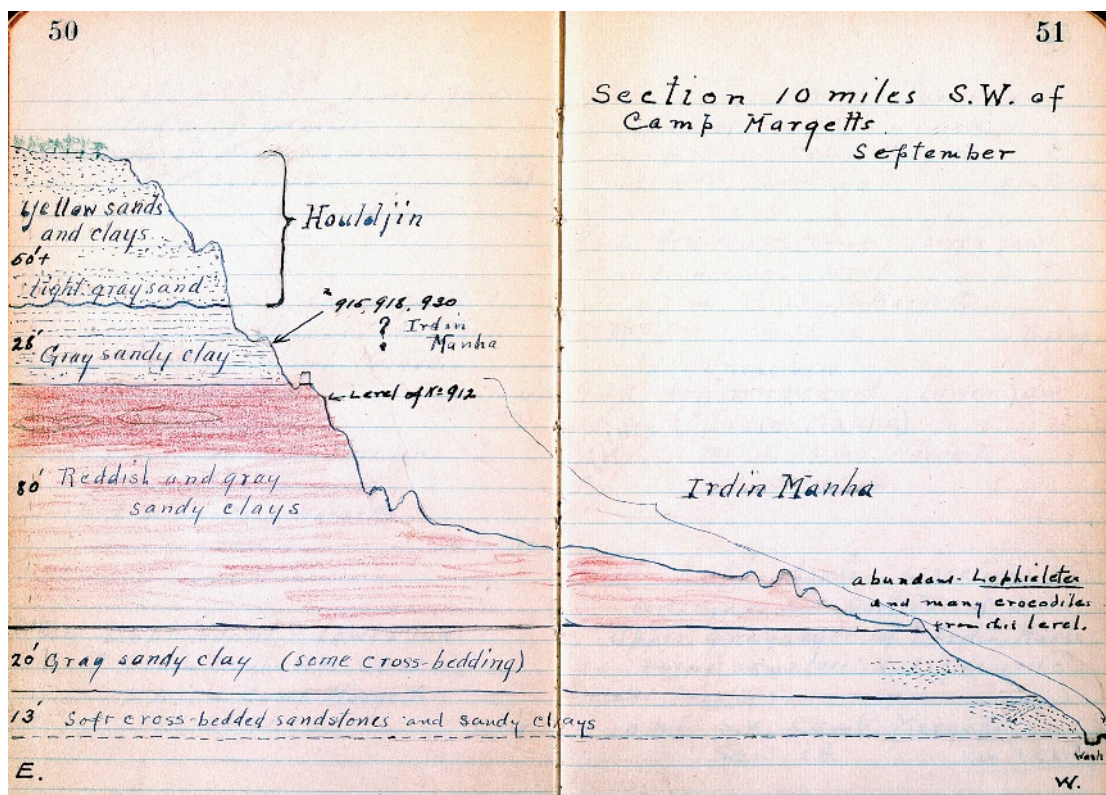 50
51
Section 10 miles S.W. of
Camp Margetts.
September
Yellow sands
and clays
50'+
light gray sand
Houldjin
915, 918, 930
? Irdin
Manha
25' Gray sandy clay
Level of No 912
80' Reddish and gray
sandy clays
Irdin Manha
abundant Lophialetes
and many crocodiles
from this level.
20' Gray sandy clay (some cross-bedding)
13' Soft cross-bedded sandstones and sandy clays
Wash
E.
W.